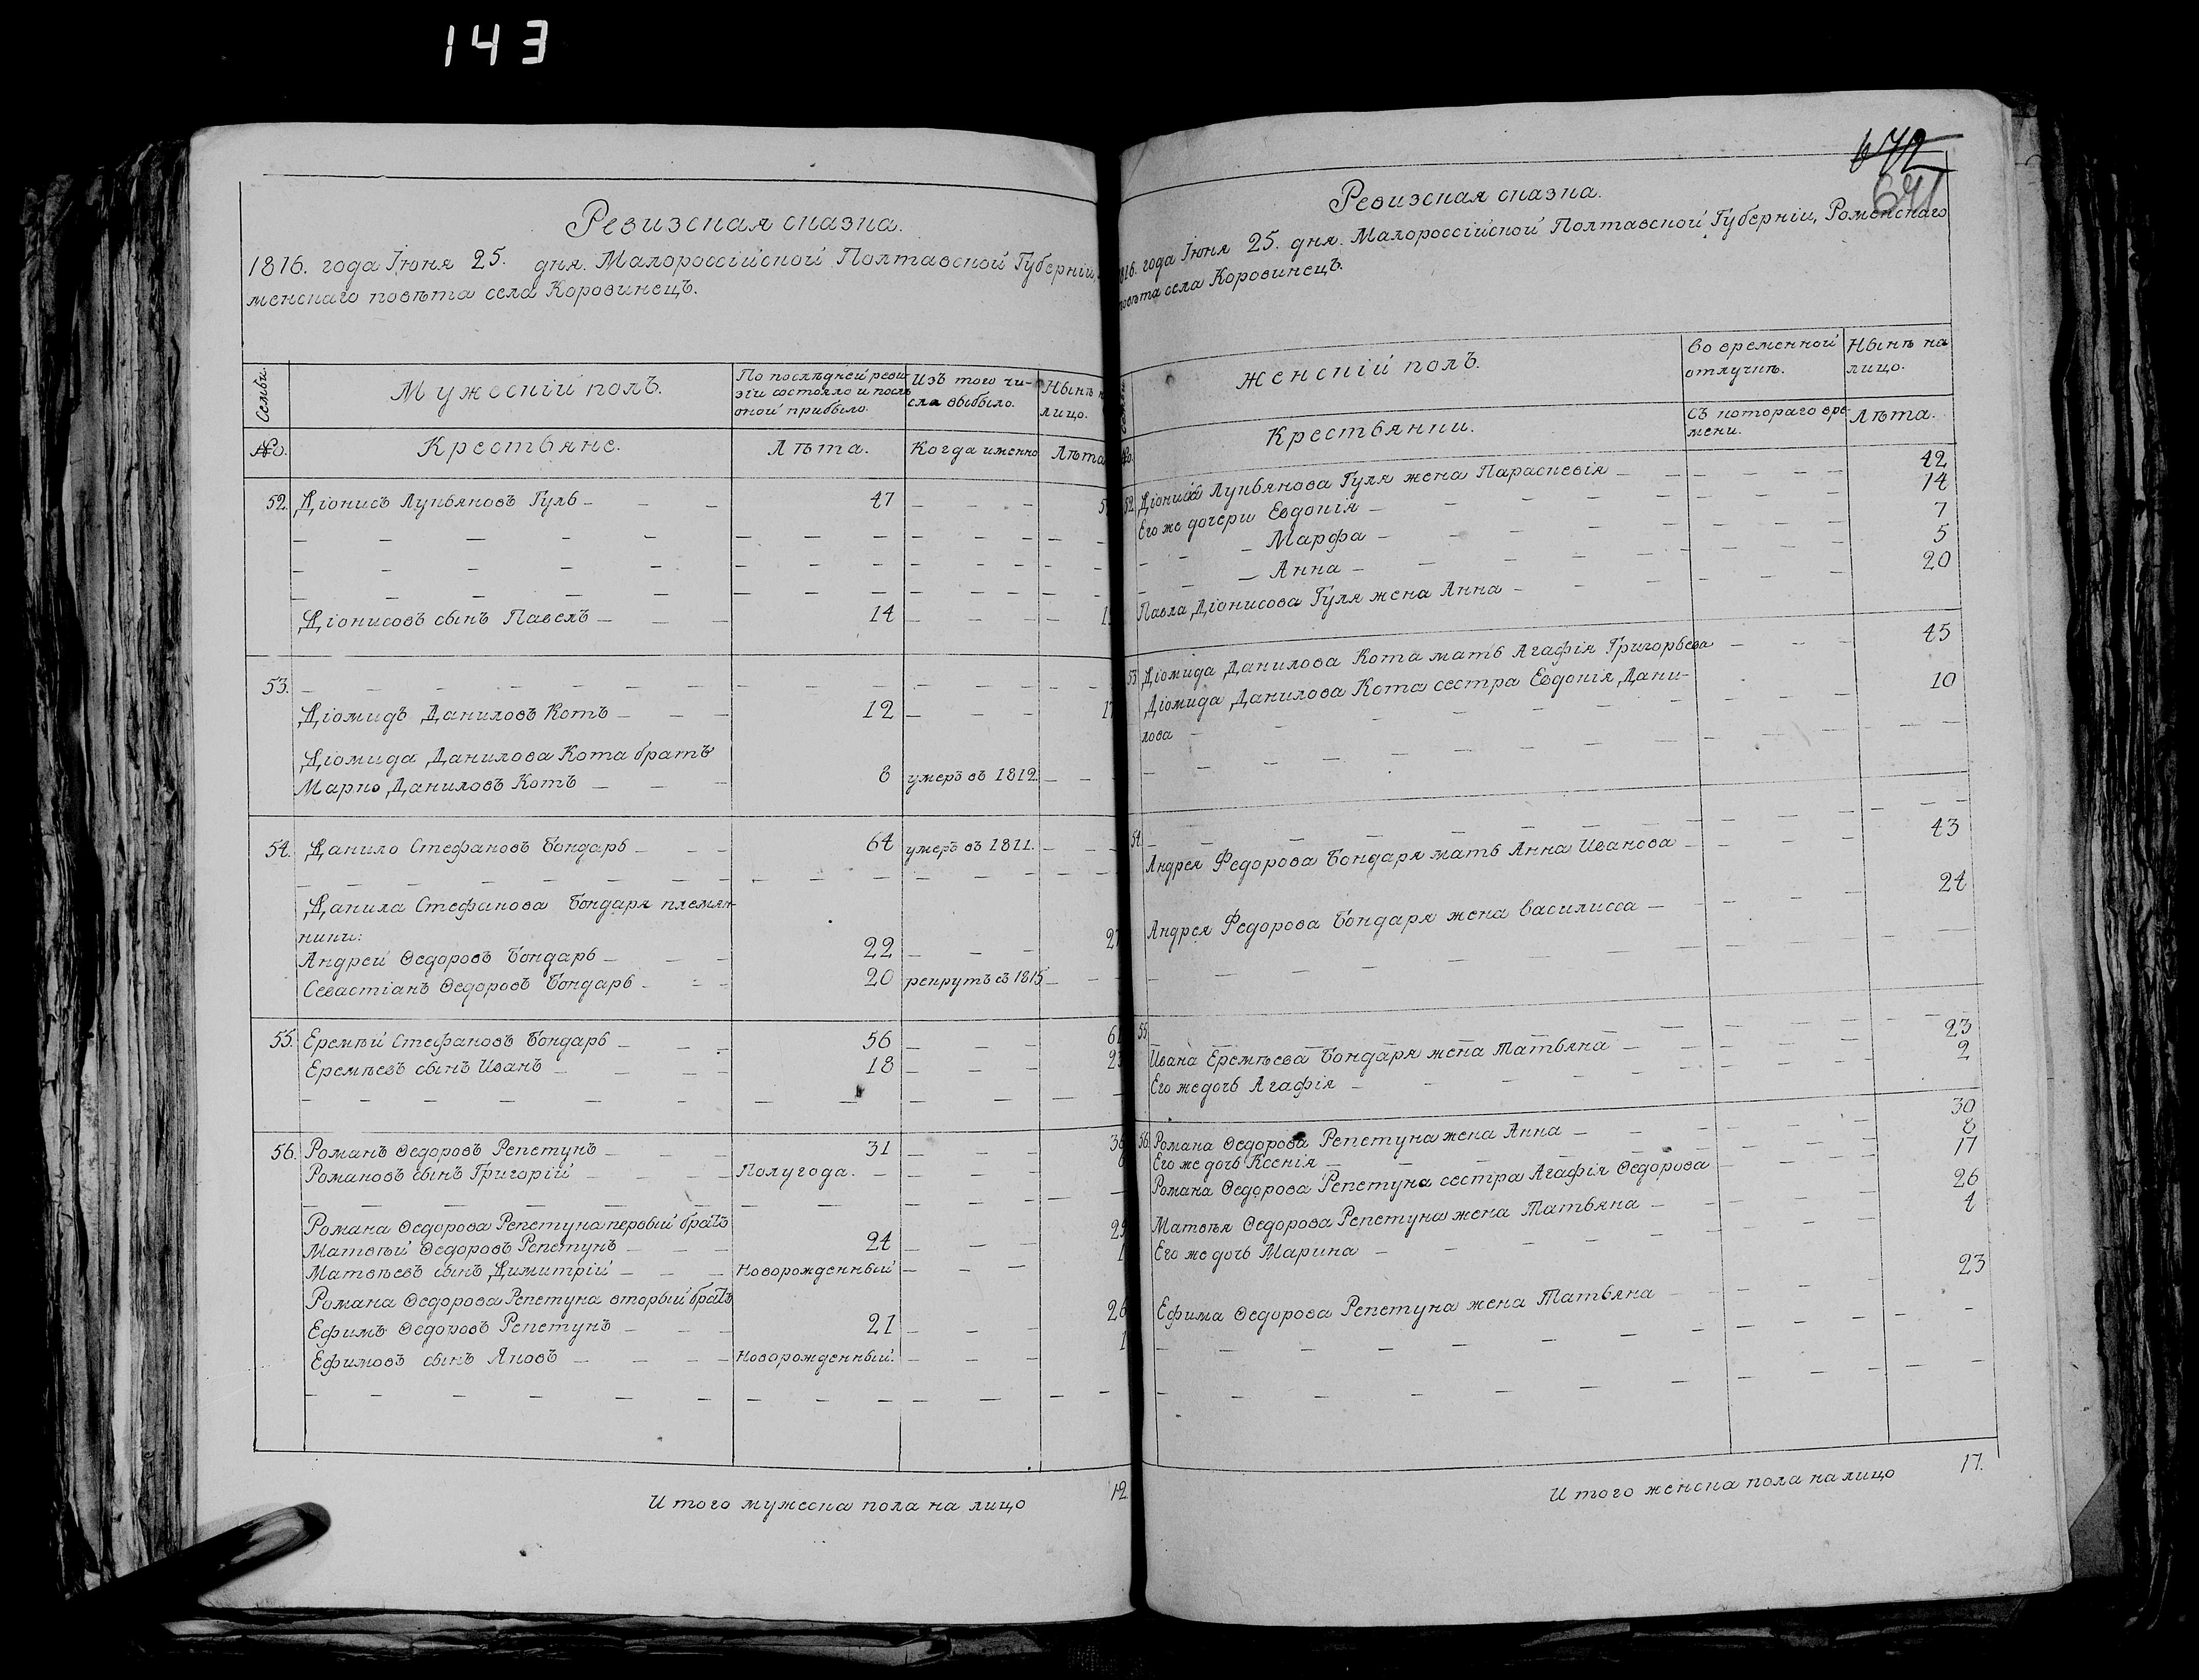 143
Ревизская сказка.
1816. года Іюня 25. дня. Малороссійской Полтавской Губерніи,
менскаго повѣта села Коровинецъ.
Семьи.
Мужескій полъ.
По послѣдней реви-
зіи состояло и послѣ
оной прибыло.
Изъ того чи-
сла выбыло.
Нынѣ н
лицо.
№.
Крестьяне.
Лѣта.
Когда именно
Лѣта
52. Діонисъ Лукьяновъ Гуль – – – 47 – – – 5
Діонисовъ сынъ Павелъ – – – 14 – – – 1
53.
Діомидъ Даниловъ Котъ – – – 12 – – – 17
Діомида Данилова Кота братъ
Марко Даниловъ Котъ – – – 8 умеръ въ 1812. – –
54. Данило Стефановъ Бондарь – – – 64 умеръ въ 1811. – – –
Данила Стефанова Бондаря племян-
ники:
Андрей Ѳедоровъ Бондарь – – – 22 – – – 27
Севастіанъ Ѳедоровъ Бондарь – – – 20 рекрутъ въ 1815 –
55. Еремѣй Стефановъ Бондарь – – – 56 – – – 61
Еремѣевъ сынъ Иванъ – – – – 18 – – – 23
56. Романъ Ѳедоровъ Репетунъ – – – 31 – – – 36
Романовъ сынъ Григорій – – – – Полугода. – – – – 6
Романа Ѳедорова Репетуна первый братъ
Матвѣй Ѳедоровъ Репетунъ – – – 24 – – – 29
Матвѣевъ сынъ Димитрій – – – Новорожденный – – – 1
Романа Ѳедорова Репетуна вторый братъ
Ефимъ Ѳедоровъ Репетунъ – – – 21 – – – 26
Ефимовъ сынъ Яковъ – – – – Новорожденный. – – – 1
Итого мужеска пола на лицо 12.
672
671
Ревизская сказка.
816. года Іюня 25. дня. Малороссійской Полтавской Губерніи, Роменскаго
повѣта села Коровинецъ.
Женскій полъ.
Во временной
отлучкѣ.
Нынѣ на
лицо.
№.
Крестьянки.
Съ котораго вре-
мени.
Лѣта.
52. Діонисія Лукьянова Гуля жена Параскевія – – – – 42
Его же дочери Евдокія – 14
– Марфа – 7
– Анна – 5
Павла Діонисова Гуля жена Анна – 20
53. Діомида Данилова Кота мать Агафія Григорьева – – – 45
Діомида Данилова Кота сестра Евдокія Дани-
лова – 10
54.
Андрея Федорова Бондаря мать Анна Иванова – – 43
Андрея Федорова Бондаря жена Василисса – – – 24
55.
Ивана Еремѣева Бондаря жена Татьяна – – 23
Его же дочь Агафія – 2
56. Романа Ѳедорова Репетуна жена Анна – – 30
Его же дочь Ксенія – 8
Романа Ѳедорова Репетуна сестра Агафія Ѳедорова 17
Матвѣя Ѳедорова Репетуна жена Татьяна – – 26
Его же дочь Марина –
Ефима Ѳедорова Репетуна жена Татьяна – – 23
Итого женска пола на лицо 17.